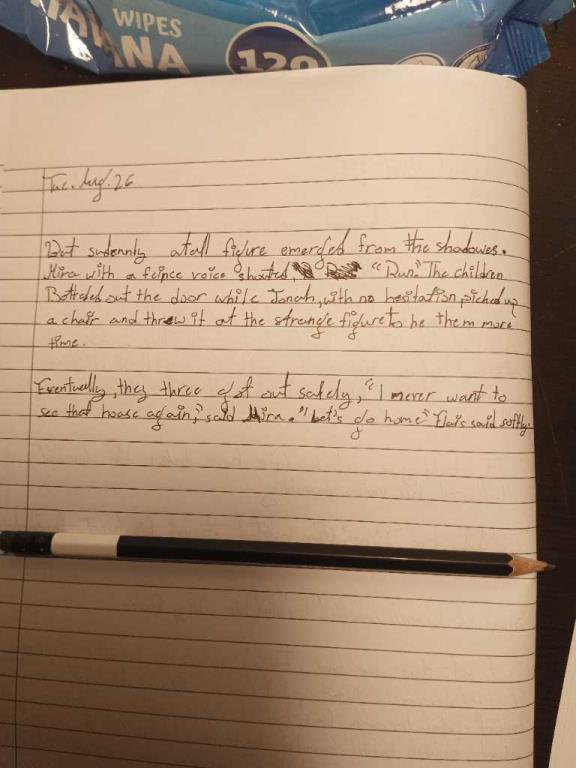 WIPES
ANA
120
Tue. Aug. 26
But sudennly a tall figure emerged from the shadowes.
Mira with a feirce voice shouted, "Run." The children
Botteled out the door while Jonah, with no hesitation, picked up
a chair and threw it at the strange figure to he them more
time.
Eventually, they three got out safely, "I never want to
see that house again," said Mira. "Let's go home" Elais said softly.